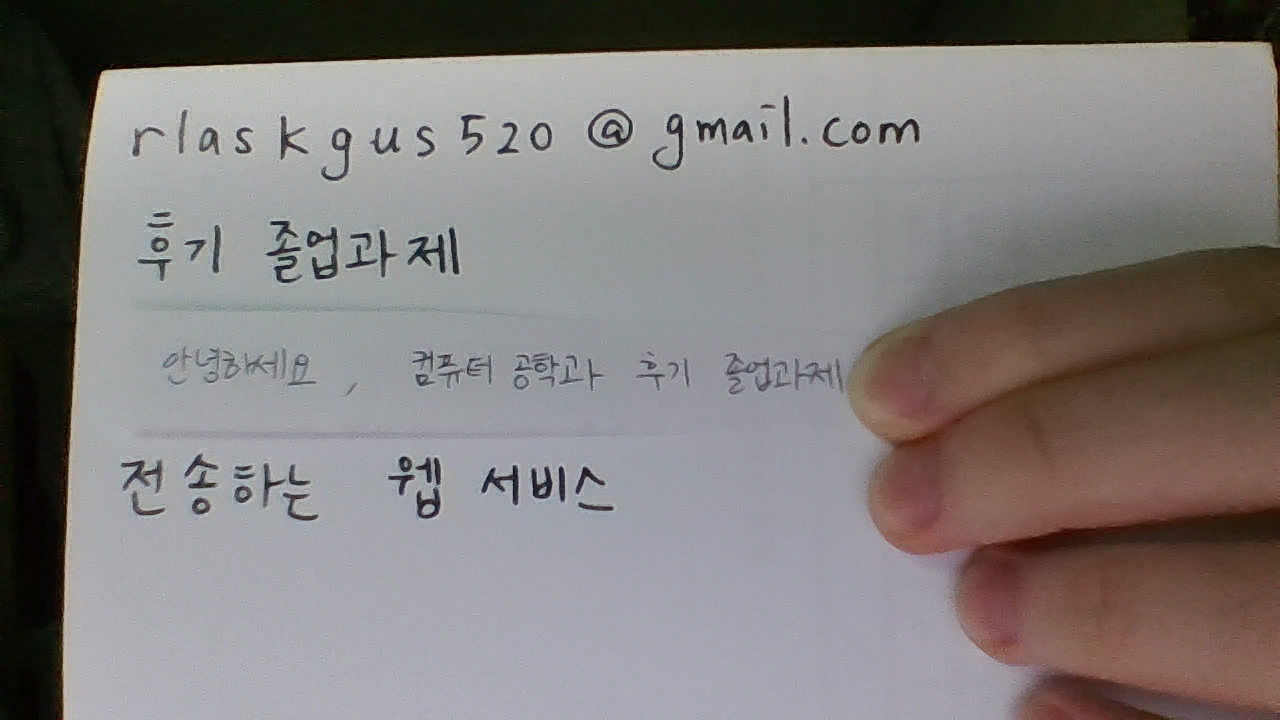 rlaskgus520@gmail.com
후기 졸업과제
안녕하세요, 컴퓨터 공학과 후기 졸업과제
전송하는 웹 서비스